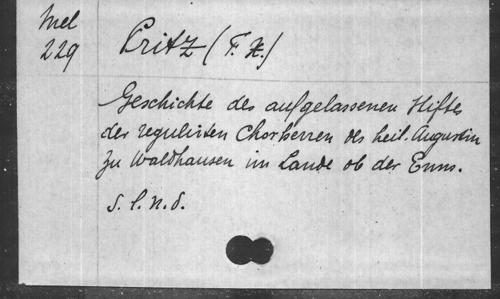 Mel
229
Pritz (F. X.)
Geschichte des aufgelassenen Stiftes
der regulirten Chorherren des heil. Augustin
zu Waldhausen im Lande ob der Enns.
s. l. n. d.